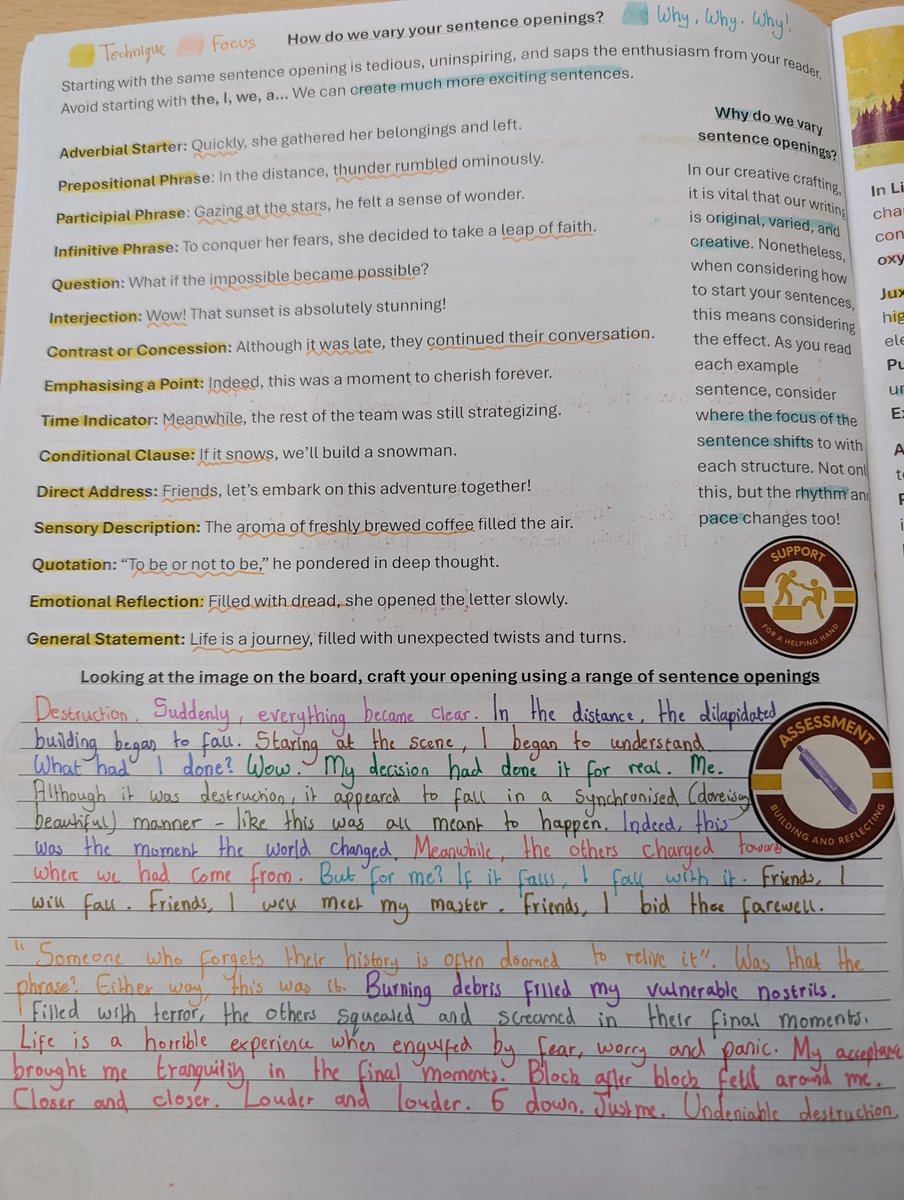 Technique Focus How do we vary your sentence openings? Why, Why. Why!
Starting with the same sentence opening is tedious, uninspiring, and saps the enthusiasm from your reader.
Avoid starting with the, I, we, a... We can create much more exciting sentences.
Adverbial Starter: Quickly, she gathered her belongings and left.
Prepositional Phrase: In the distance, thunder rumbled ominously.
Participial Phrase: Gazing at the stars, he felt a sense of wonder.
Infinitive Phrase: To conquer her fears, she decided to take a leap of faith.
Question: What if the impossible became possible?
Interjection: Wow! That sunset is absolutely stunning!
Contrast or Concession: Although it was late, they continued their conversation.
Emphasising a Point: Indeed, this was a moment to cherish forever.
Time Indicator: Meanwhile, the rest of the team was still strategizing.
Conditional Clause: If it snows, we'll build a snowman.
Direct Address: Friends, let's embark on this adventure together!
Sensory Description: The aroma of freshly brewed coffee filled the air.
Quotation: "To be or not to be," he pondered in deep thought.
Emotional Reflection: Filled with dread, she opened the letter slowly.
General Statement: Life is a journey, filled with unexpected twists and turns.
Why do we vary
sentence openings?
In our creative crafting,
it is vital that our writing
is original, varied, and
creative. Nonetheless,
when considering how
to start your sentences,
this means considering
the effect. As you read
each example
sentence, consider
where the focus of the
sentence shifts to with
each structure. Not onl
this, but the rhythm and
pace changes too!
SUPPORT
FOR A HELPING HAND
Looking at the image on the board, craft your opening using a range of sentence openings
Destruction. Suddenly, everything became clear. In the distance, the dilapidated
building began to fall. Staring at the scene, I began to understand.
What had I done? Wow. My decision had done it for real. Me.
Although it was destruction, it appeared to fall in a synchronised
beautiful) manner - like this was all meant to happen. Indeed, this
was the moment the world changed. Meanwhile, the others charged towards
where we had come from. But for me? If it falls, I fall with it. Friends, I
will fall. Friends, I will meet my master. Friends, I bid thee farewell.
"Someone who forgets their history is often doomed to relive it". Was that the
phrase? Either way, this was it. Burning debris filled my vulnerable nostrils.
Filled with terror, the others squealed and screamed in their final moments.
Life is a horrible experience when engulfed by fear, worry and panic. My acceptance
brought me tranquility in the final moments. Block after block fell around me.
Closer and closer. Louder and louder. 6 down. Just me. Undeniable destruction
ASSESSMENT
BUILDING AND REFLECTING
In Li
cha
con
oxy
Jux
hig
ele
Pu
un
Ex
A